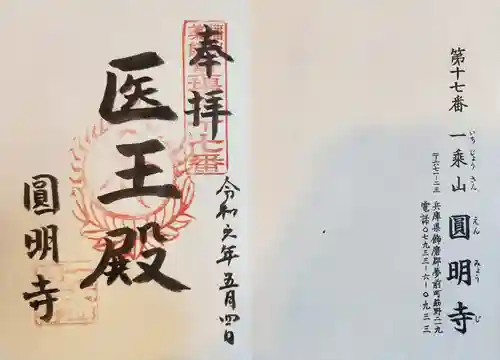 奉拝
医王殿
圓明寺
令和六年五月四日
第十七番
一乗山
いちじょうさん
圓明寺
えんみょうじ
兵庫県飾磨郡夢前町莇野二一九
電話〇七九三三-六-〇九三三